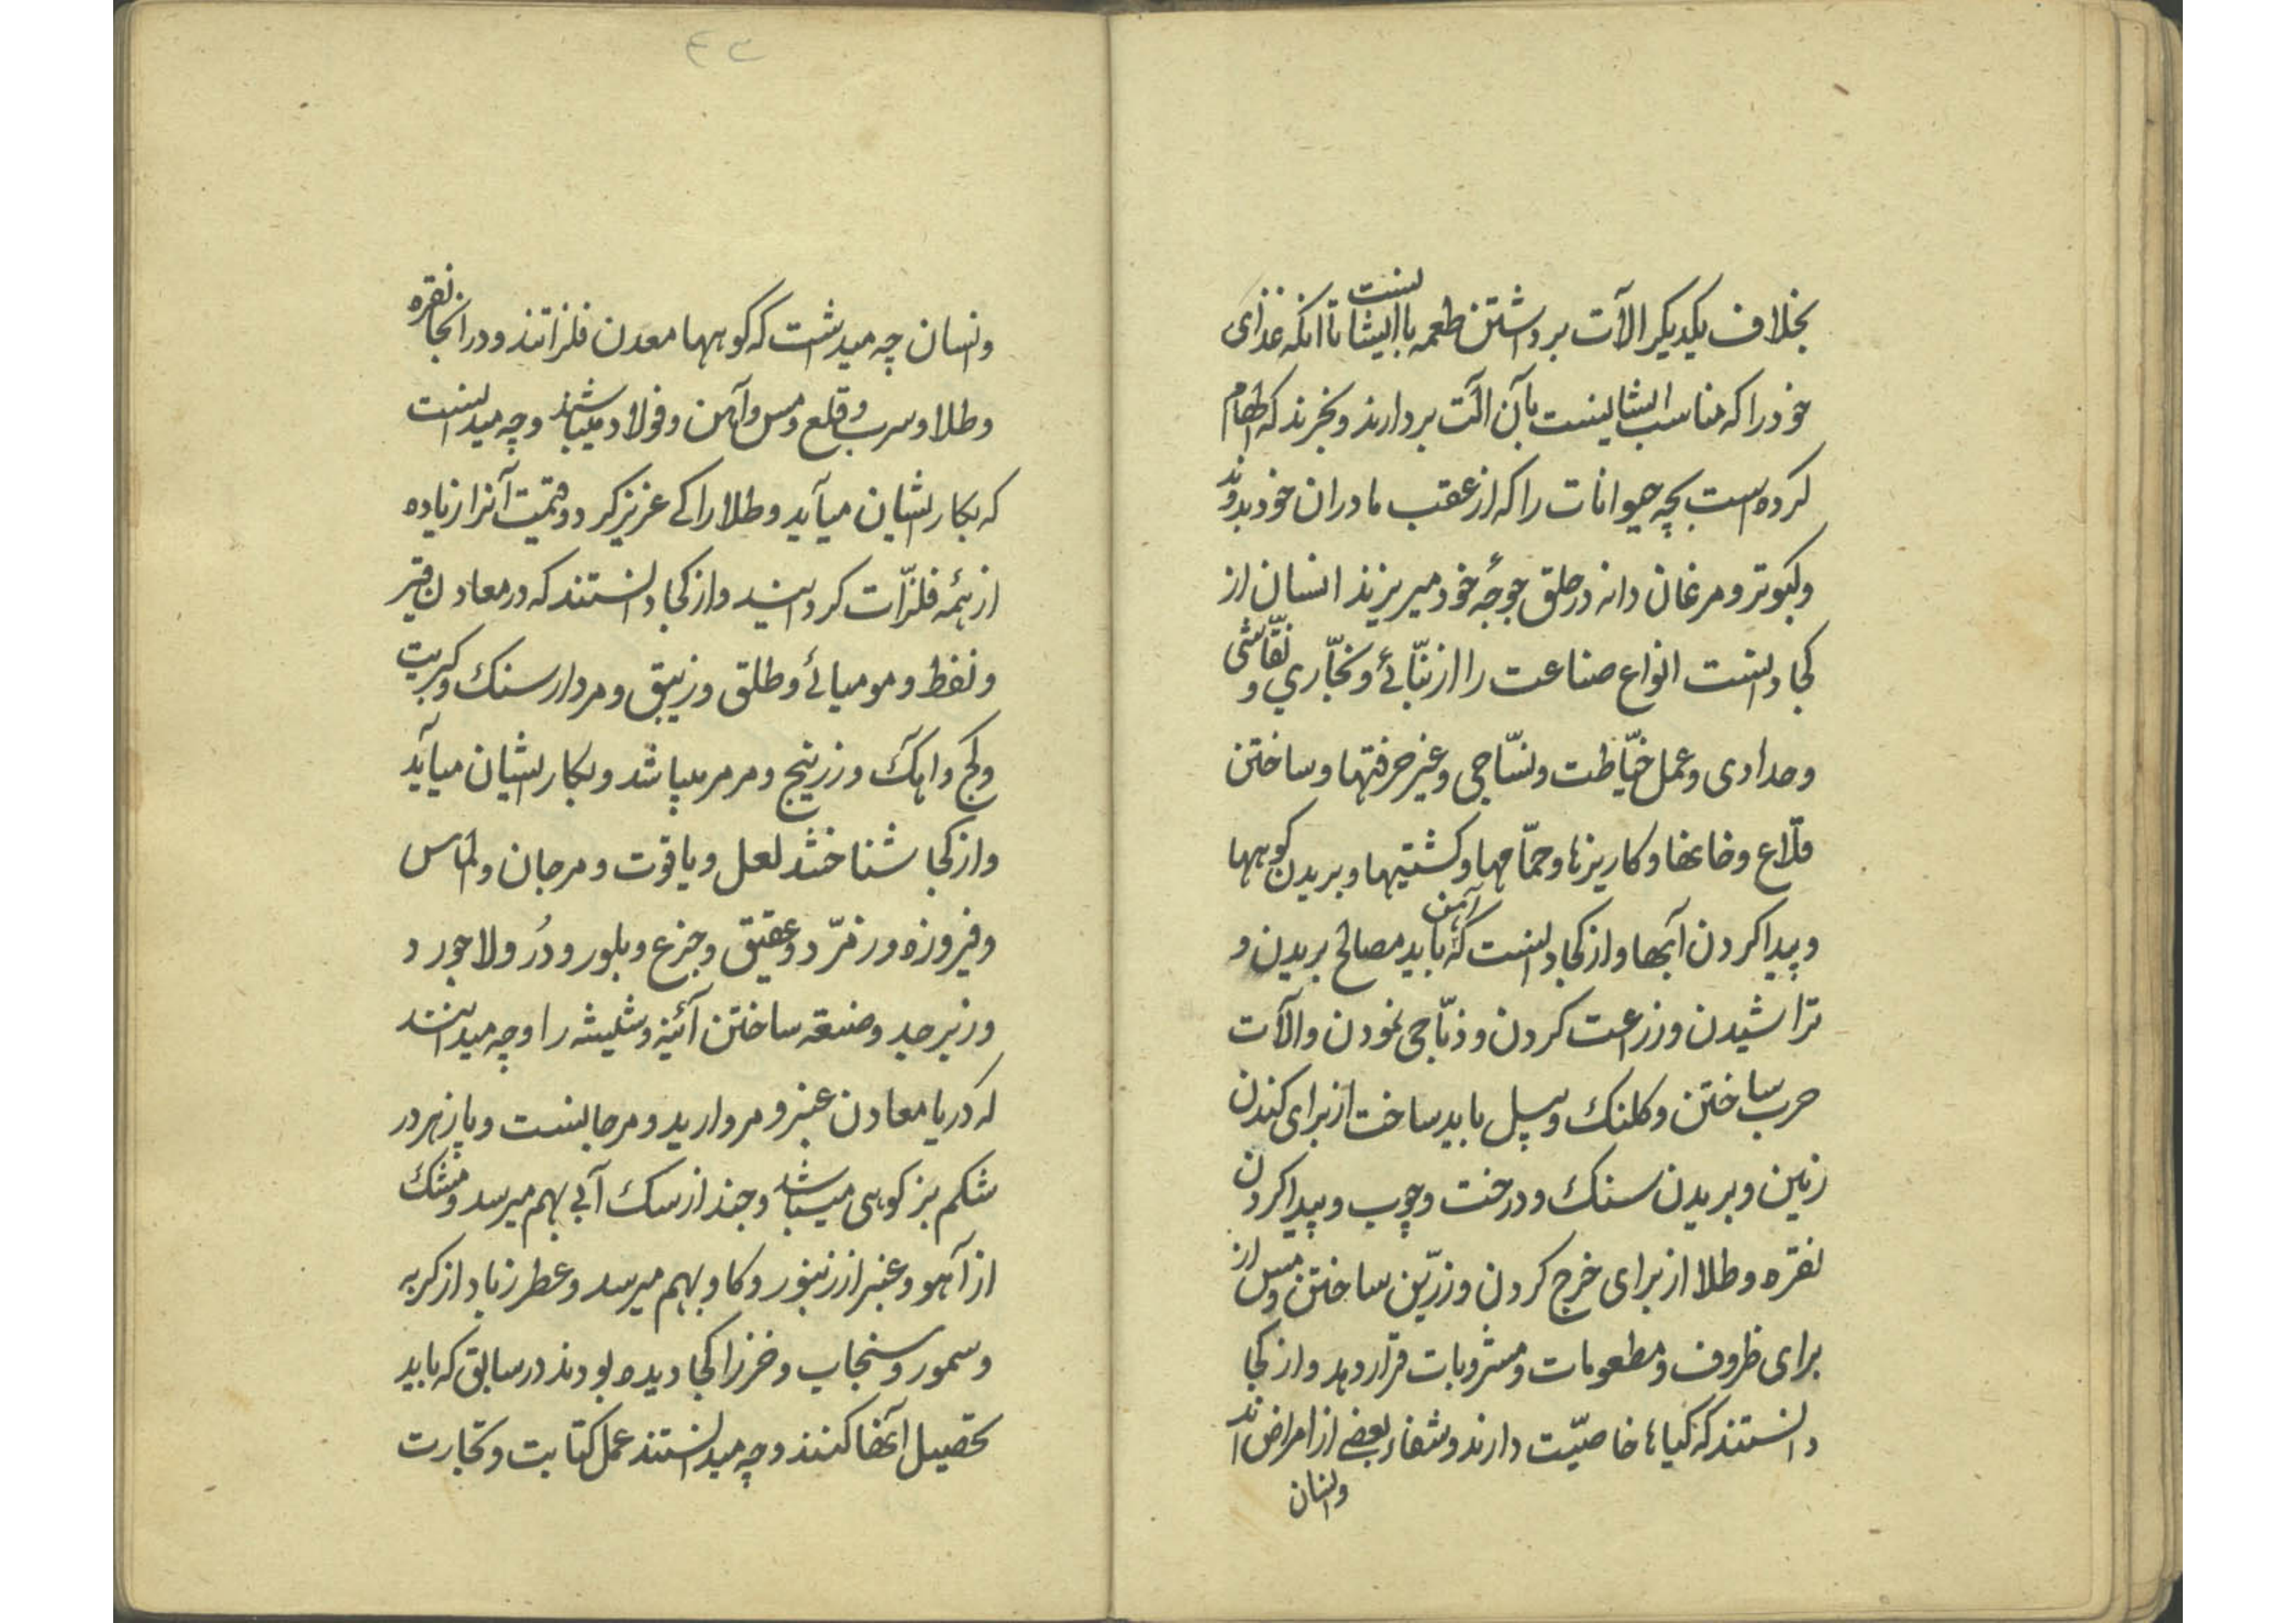 بخلاف یکدیکر الآت برداشتن طعمه با ایشانست تا انکه غذای
خود را که مناسب ایشانست بآن الت بردارند و بخرند که الهام
کرده است بچه حیوانات را که از عقب مادران خود بدوند
و کبوتر و مرغان دانه در حلق جوجهٔ خود میریزند انسان از
کجا دانست انواع صناعت را از بنّائے و نجّاري و نقّاشی
و حدادی و عمل خیّاطت و نسّاجی و غیر حرفتها و ساختن
قلّاع و خانها و کاریزها و حمّامها و کشتیها و بریدن کوهها
و پیدا کردن آبها و از کجا دانست که آهن باید مصالح بریدن و
تراشیدن و زراعت کردن و ذبّاحی نمودن و الآت
حرب ساختن و کلنک و بیل باید ساخت از برای کندن
زمین و بریدن سنک و درخت و چوب و پیدا کردن
نقره و طلا از برای خرج کردن و زرّین ساختن و مس از
برای ظروف و مطعومات و مشروبات قرار دهد و از کجا
دانستند که کیاها خاصیّت دارند و شفاء بعضے از امراض اند
و انسان
۴۳
و انسان چه میدانست که کوهها معدن فلزاتند و در انجا نقره
و طلا و سرب و قلع و مس و آهن و فولاد میباشند و چه میدانست
که بکار ایشان میآید و طلا را کے عزیز کرد و قیمت آنرا زیاده
از همه فلزّات کردانید و از کجا دانستند که در معادن قیر
و نفط و مومیائے و طلق و زیبق و مردار سنک و کبریت
و کج و اهک و زرنیج و مرمر میباشد و بکار ایشان میآید
و از کجا شناختند لعل و یاقوت و مرجان و الماس
و فیروزه و زمرّد و عقیق و جزع و بلور و دُر و لاجورد
و زبرجد و صنعة ساختن آئینه و شیشه را و چه میدانند
که دریا معادن عنبر و مروارید و مرجانست و پازهر در
شکم بز کوهی میباشد و جند از سک آبی بهم میرسد و مشک
از آهو و عنبر از زنبور و کاو بهم میرسد و عطر زباد از کربه
و سمور و سنجاب و خز را کجا دیده بودند در سابق که باید
تحصیل آنها کنند و چه میدانستند عمل کتابت و تجارت